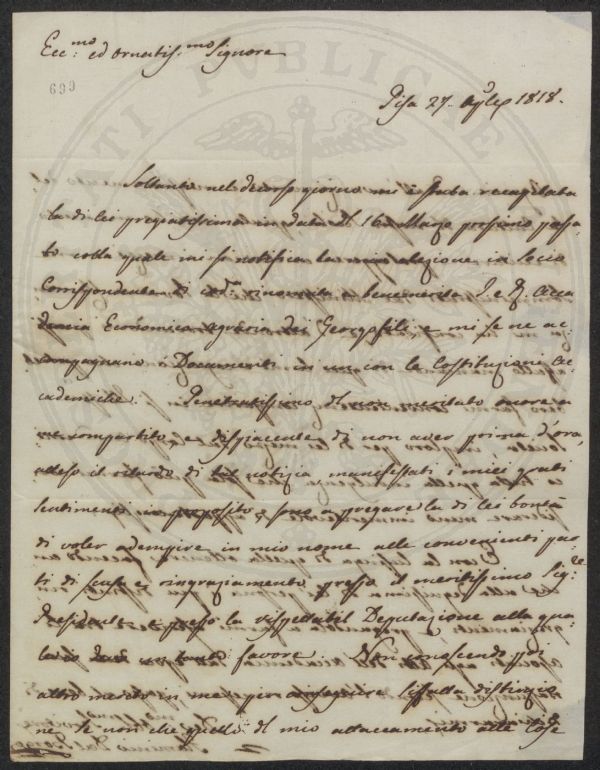 Ecc.mo ed Ornatis.mo Signore
699
Pisa 27. 1818.
Soltanto nel decorso giorno mi è stata recapitata
la di lei pregiatissima in data del 16 Marzo prossimo passa-
to colla quale mi si notifica la mia elezione in Socio
Corrispondente di cod.ta rinomata e benemerita I. e R. Acca
demia Economico Agraria dei Georgofili e mi se ne ac
compagnano i Documenti in un con le Costituzioni Ac
cademiche. Penetratissimo del non meritato onore a
me compartito, e dispiacente di non aver prima d'ora,
atteso il ritardo di tal notizia manifestati i miei grati
sentimenti in proposito, sono a pregare la di lei bontà
di voler adempire in mio nome alle convenienti par
ti di scuse e ringraziamento presso il meritissimo Sig.re
Presidente e presso la rispettabil Deputazione alla qua
le io devo un tanto favore. Non conoscendo poi
altro merito in me per conseguire siffatta distinzio
ne se non che quello del mio attaccamento alle Cose
PUBLICAE